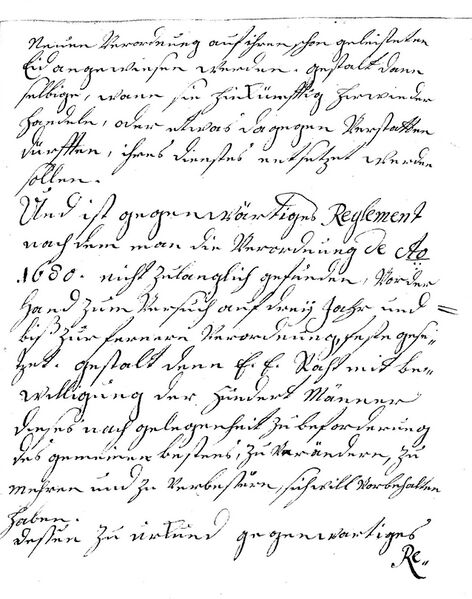 Neuen Verordnung auf ihren schon geleisteten
Eid angewiesen werden. gestalt dann
selbige, wann sie hinkünfftig hierwieder
handeln, oder etwas dagegen verstatten
dürfften, ihres dienstes entsetzet werden
sollen.
Und ist gegenwärtiges Reglement
nach dem man die Verordnung de Ao
1680. nicht zulänglich gefunden, Vor der
Hand zum Versuch auf dreij Jahr und
biß zur fernern Verordnung, feste gese-
tzet. gestalt denn E. E. Raht mit be-
willigung der Hundert Männer
dieses nach gelegenheit zu beforderung
des gemeinen bestens, zu verändern, zu
mehren und zu verbessern, sich will vorbehalten
haben.
dessen zu uhrkund gegenwärtiges
Re-